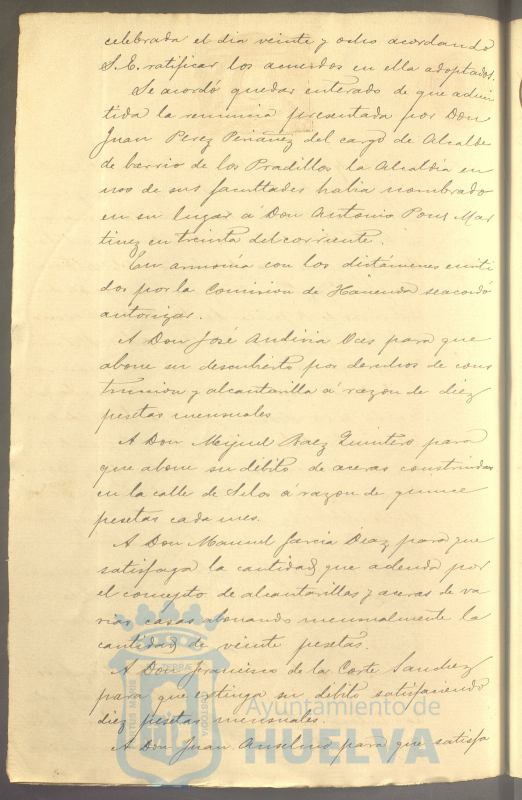 celebrada el dia veinte y ocho acordando
S. E. ratificar los acuerdos en ella adoptados.
Se acordó quedar enterado de que admi
tida la renuncia presentada por Don
Juan Perez Periañez del cargo de Alcalde
de barrio de los Pradillos la Alcaldia en
uso de sus facultades habia nombrado
en su lugar á Don Antonio Pons Mar
tinez en treinta del corriente.
En armonia con los dictámenes emiti
dos por la Comision de Hacienda se acordó
autorizar.
A Don José Andivia Oces para que
abone su descubierto por derechos de cons
truccion y alcantarilla á razon de diez
pesetas mensuales
A Don Miguel Baez Quintero para
que abone su débito de aceras construidas
en la calle de Silos á razon de quince
pesetas cada mes.
A Don Manuel Garcia Diaz para que
satisfaga la cantidad que adeuda por
el concepto de alcantarillas y aceras de va
rias casas abonando mensualmente la
cantidad de veinte pesetas.
A Don Francisco de la Corte Sanchez
para que estinga su débito satisfaciendo
diez pesetas mensuales.
A Don Juan Anselmo para que satisfa
Ayuntamiento de
HUELVA